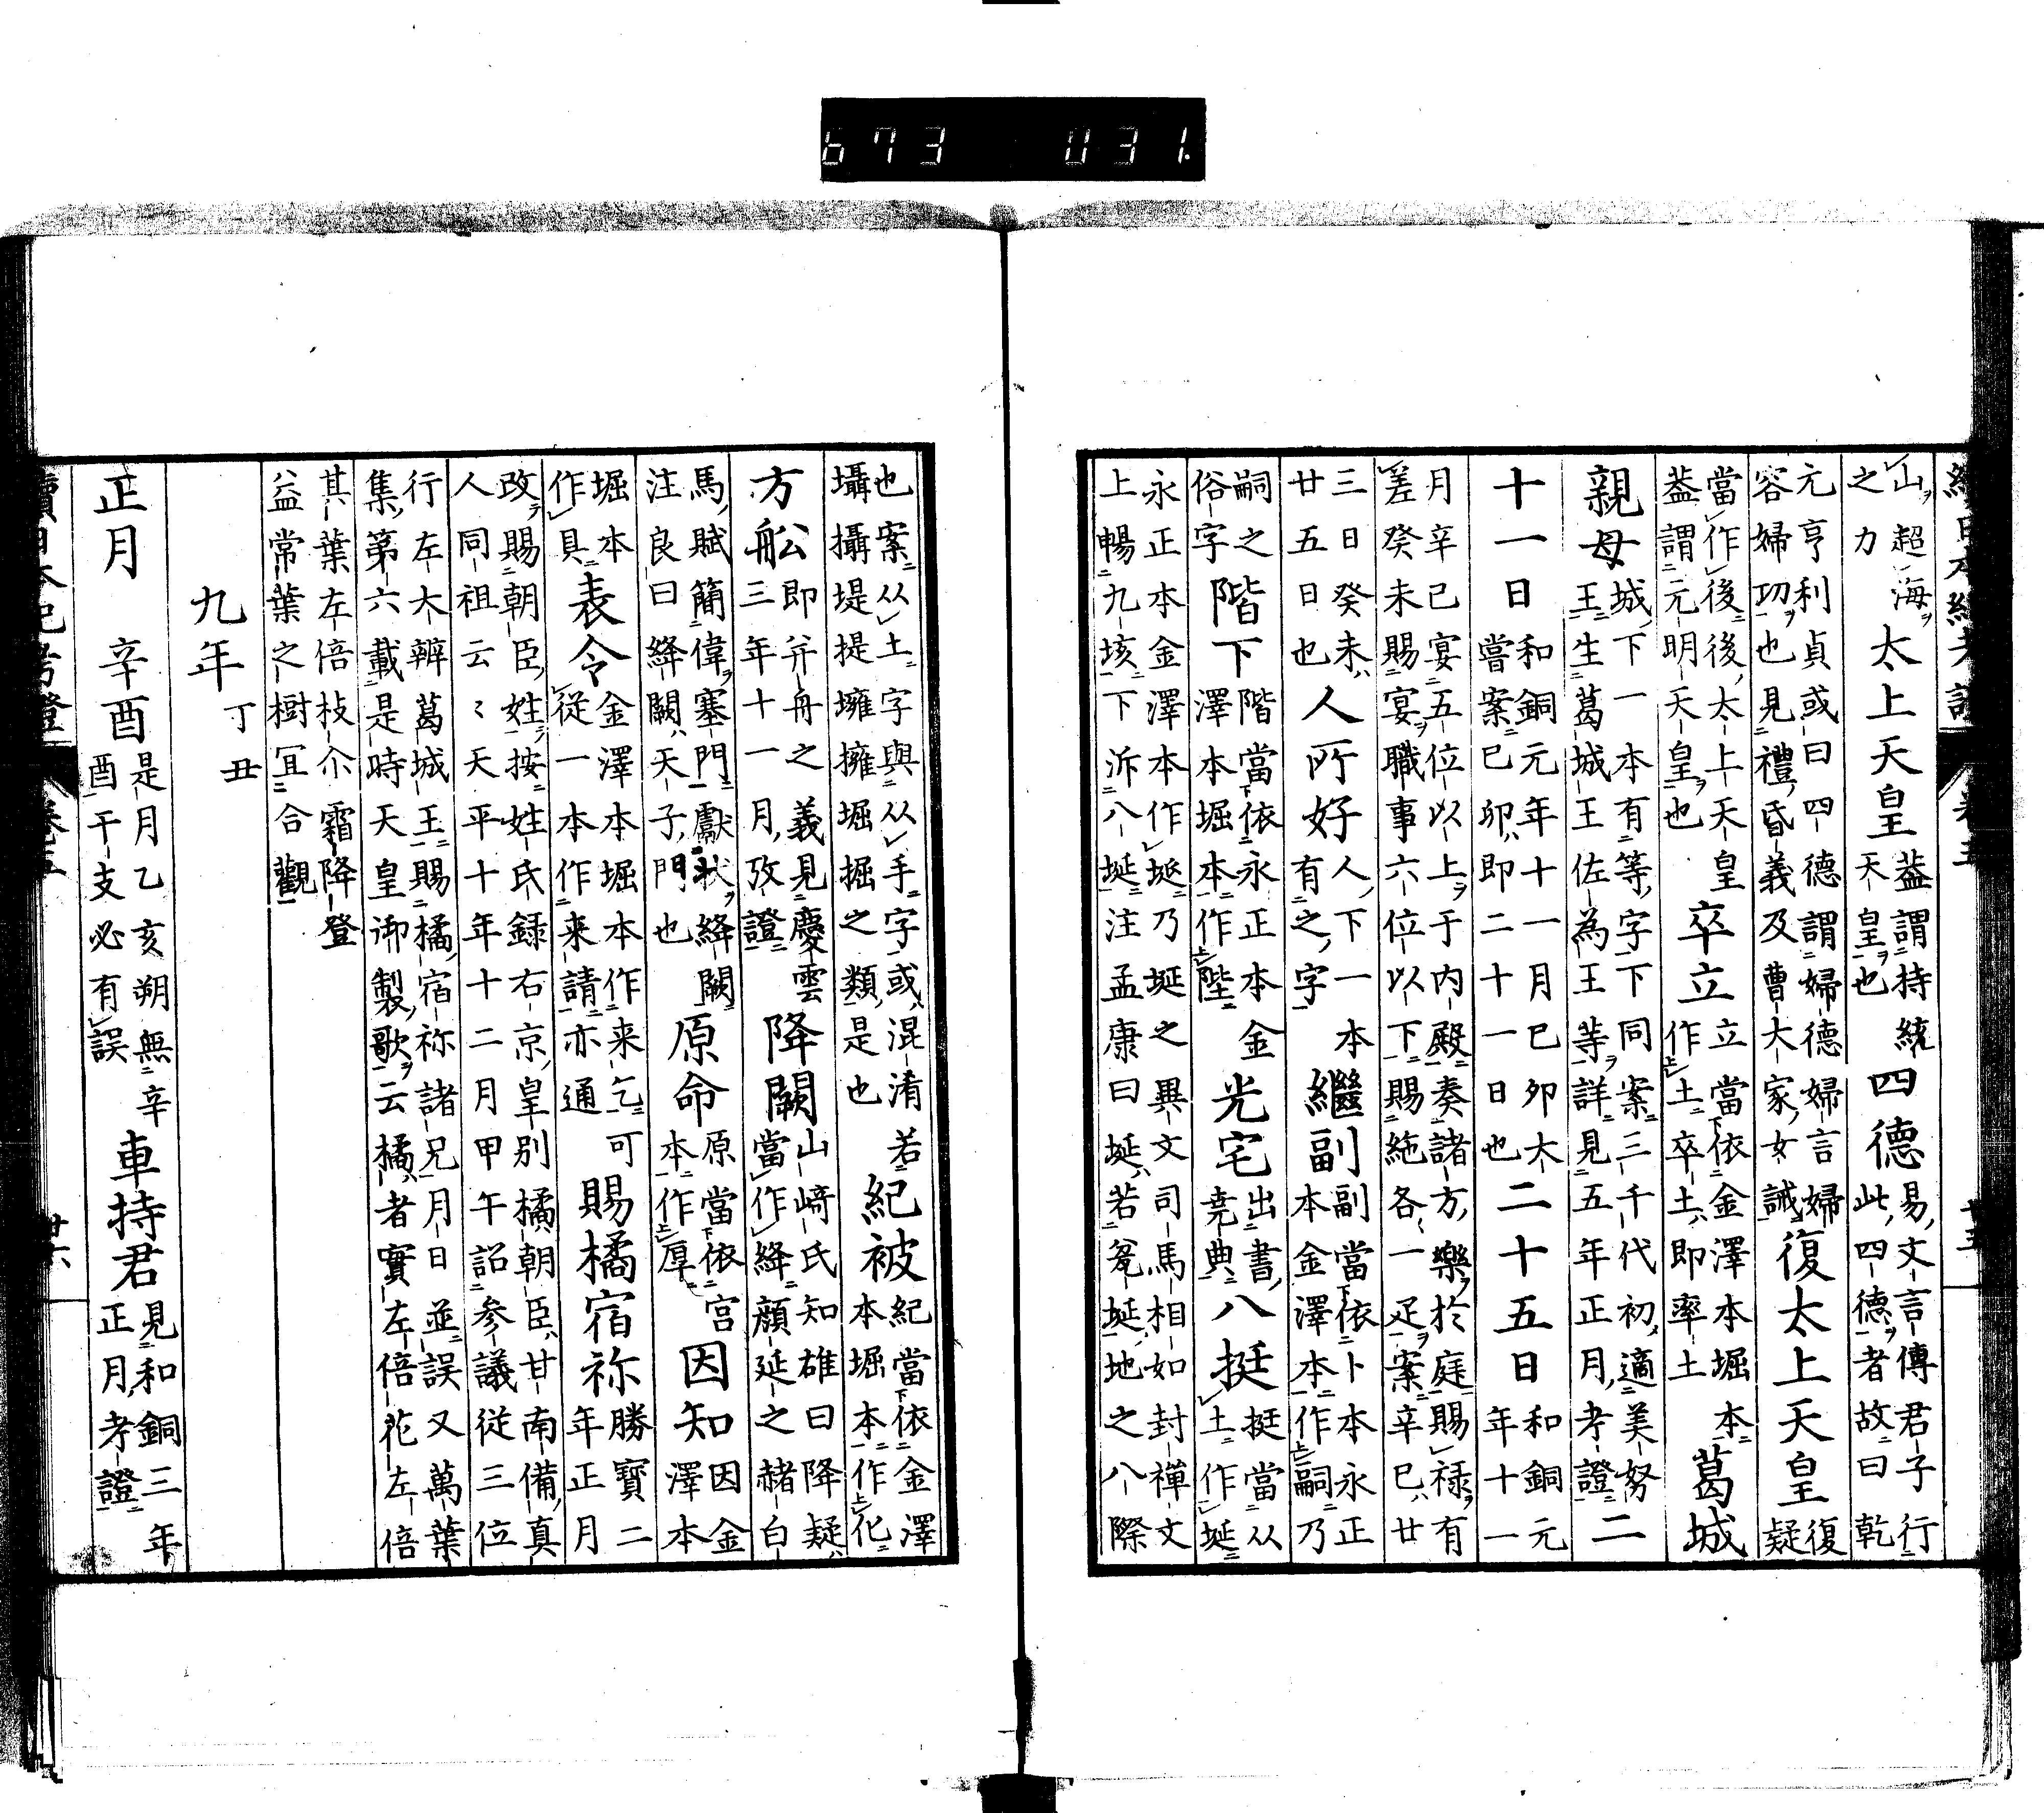 山超海之力 太上天皇 蓋謂持統天皇也 四德 易文言傳君子行此四德者故曰乾
元亨利貞或曰四德謂婦德婦言婦容婦功也見禮昏義及曹大家女誡 復太上天皇 復疑
當作後後太上天皇蓋謂元明天皇也 卒立 立當依金澤本堀本作土卒土即率土 葛城
親母 城下一本有等字下同案三千代初適美努王生葛城王佐為王等詳見五年正月考證 二
十一日 和銅元年十一月己卯大嘗案己卯即二十一日也 二十五日 和銅元年十一
月辛巳宴五位以上于内殿奏諸方樂於庭賜祿有差癸未賜宴職事六位以下賜絁各一疋案辛巳廿
三日癸未廿五日也 人所好 人下一本有之字 繼副 副當依卜本永正本金澤本作嗣乃
嗣之俗字 階下 階當依永正本金澤本堀本作陛 光宅 出書堯典 八挺 挺當从土作埏
永正本金澤本作埏乃埏之異文司馬相如封禪文上暢九垓下泝八埏注孟康曰埏若瓮埏地之八際
也案从土字與从手字或混淆若攝攝堤提擁擁堀掘之類是也 紀被 紀當依金澤本堀本作化
方舩 即并舟之義見慶雲三年十一月攷證 降闕 山﨑氏知雄曰降疑當作絳顏延之赭白
馬賦簡偉塞門獻狀絳闕注良曰絳闕天子門也 原命 原當依宮本作厚 因知 因金澤本
堀本作具 表令 金澤本堀本作来乞可從一本作来請亦通 賜橘宿祢 勝寶二年正月
改賜朝臣姓按姓氏録右京皇別橘朝臣甘南備真人同祖云〻天平十年十二月甲午詔参議従三位
行左大辨葛城王賜橘宿祢諸兄月日並誤又萬葉集第六載是時天皇御製歌云橘者實左倍花左倍
其葉左倍枝尒霜降登益常葉之樹冝合觀
九年 丁丑
正月 辛酉 是月乙亥朔無辛酉干支必有誤 車持君 見和銅三年正月考證